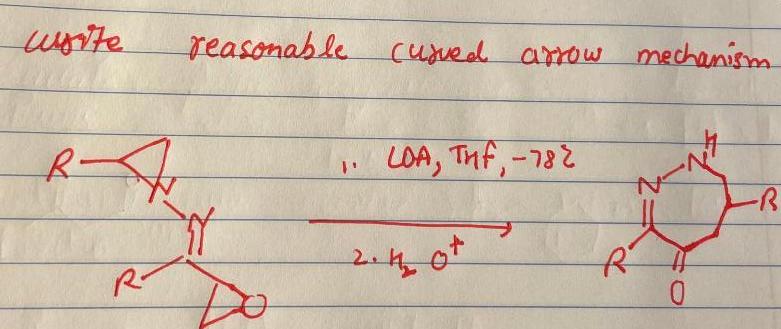 write reasonable curved arrow mechanism
R
N
N
R
O
1. LDA, THF, -78°
2. H2O+
H
N
N
R
R
O